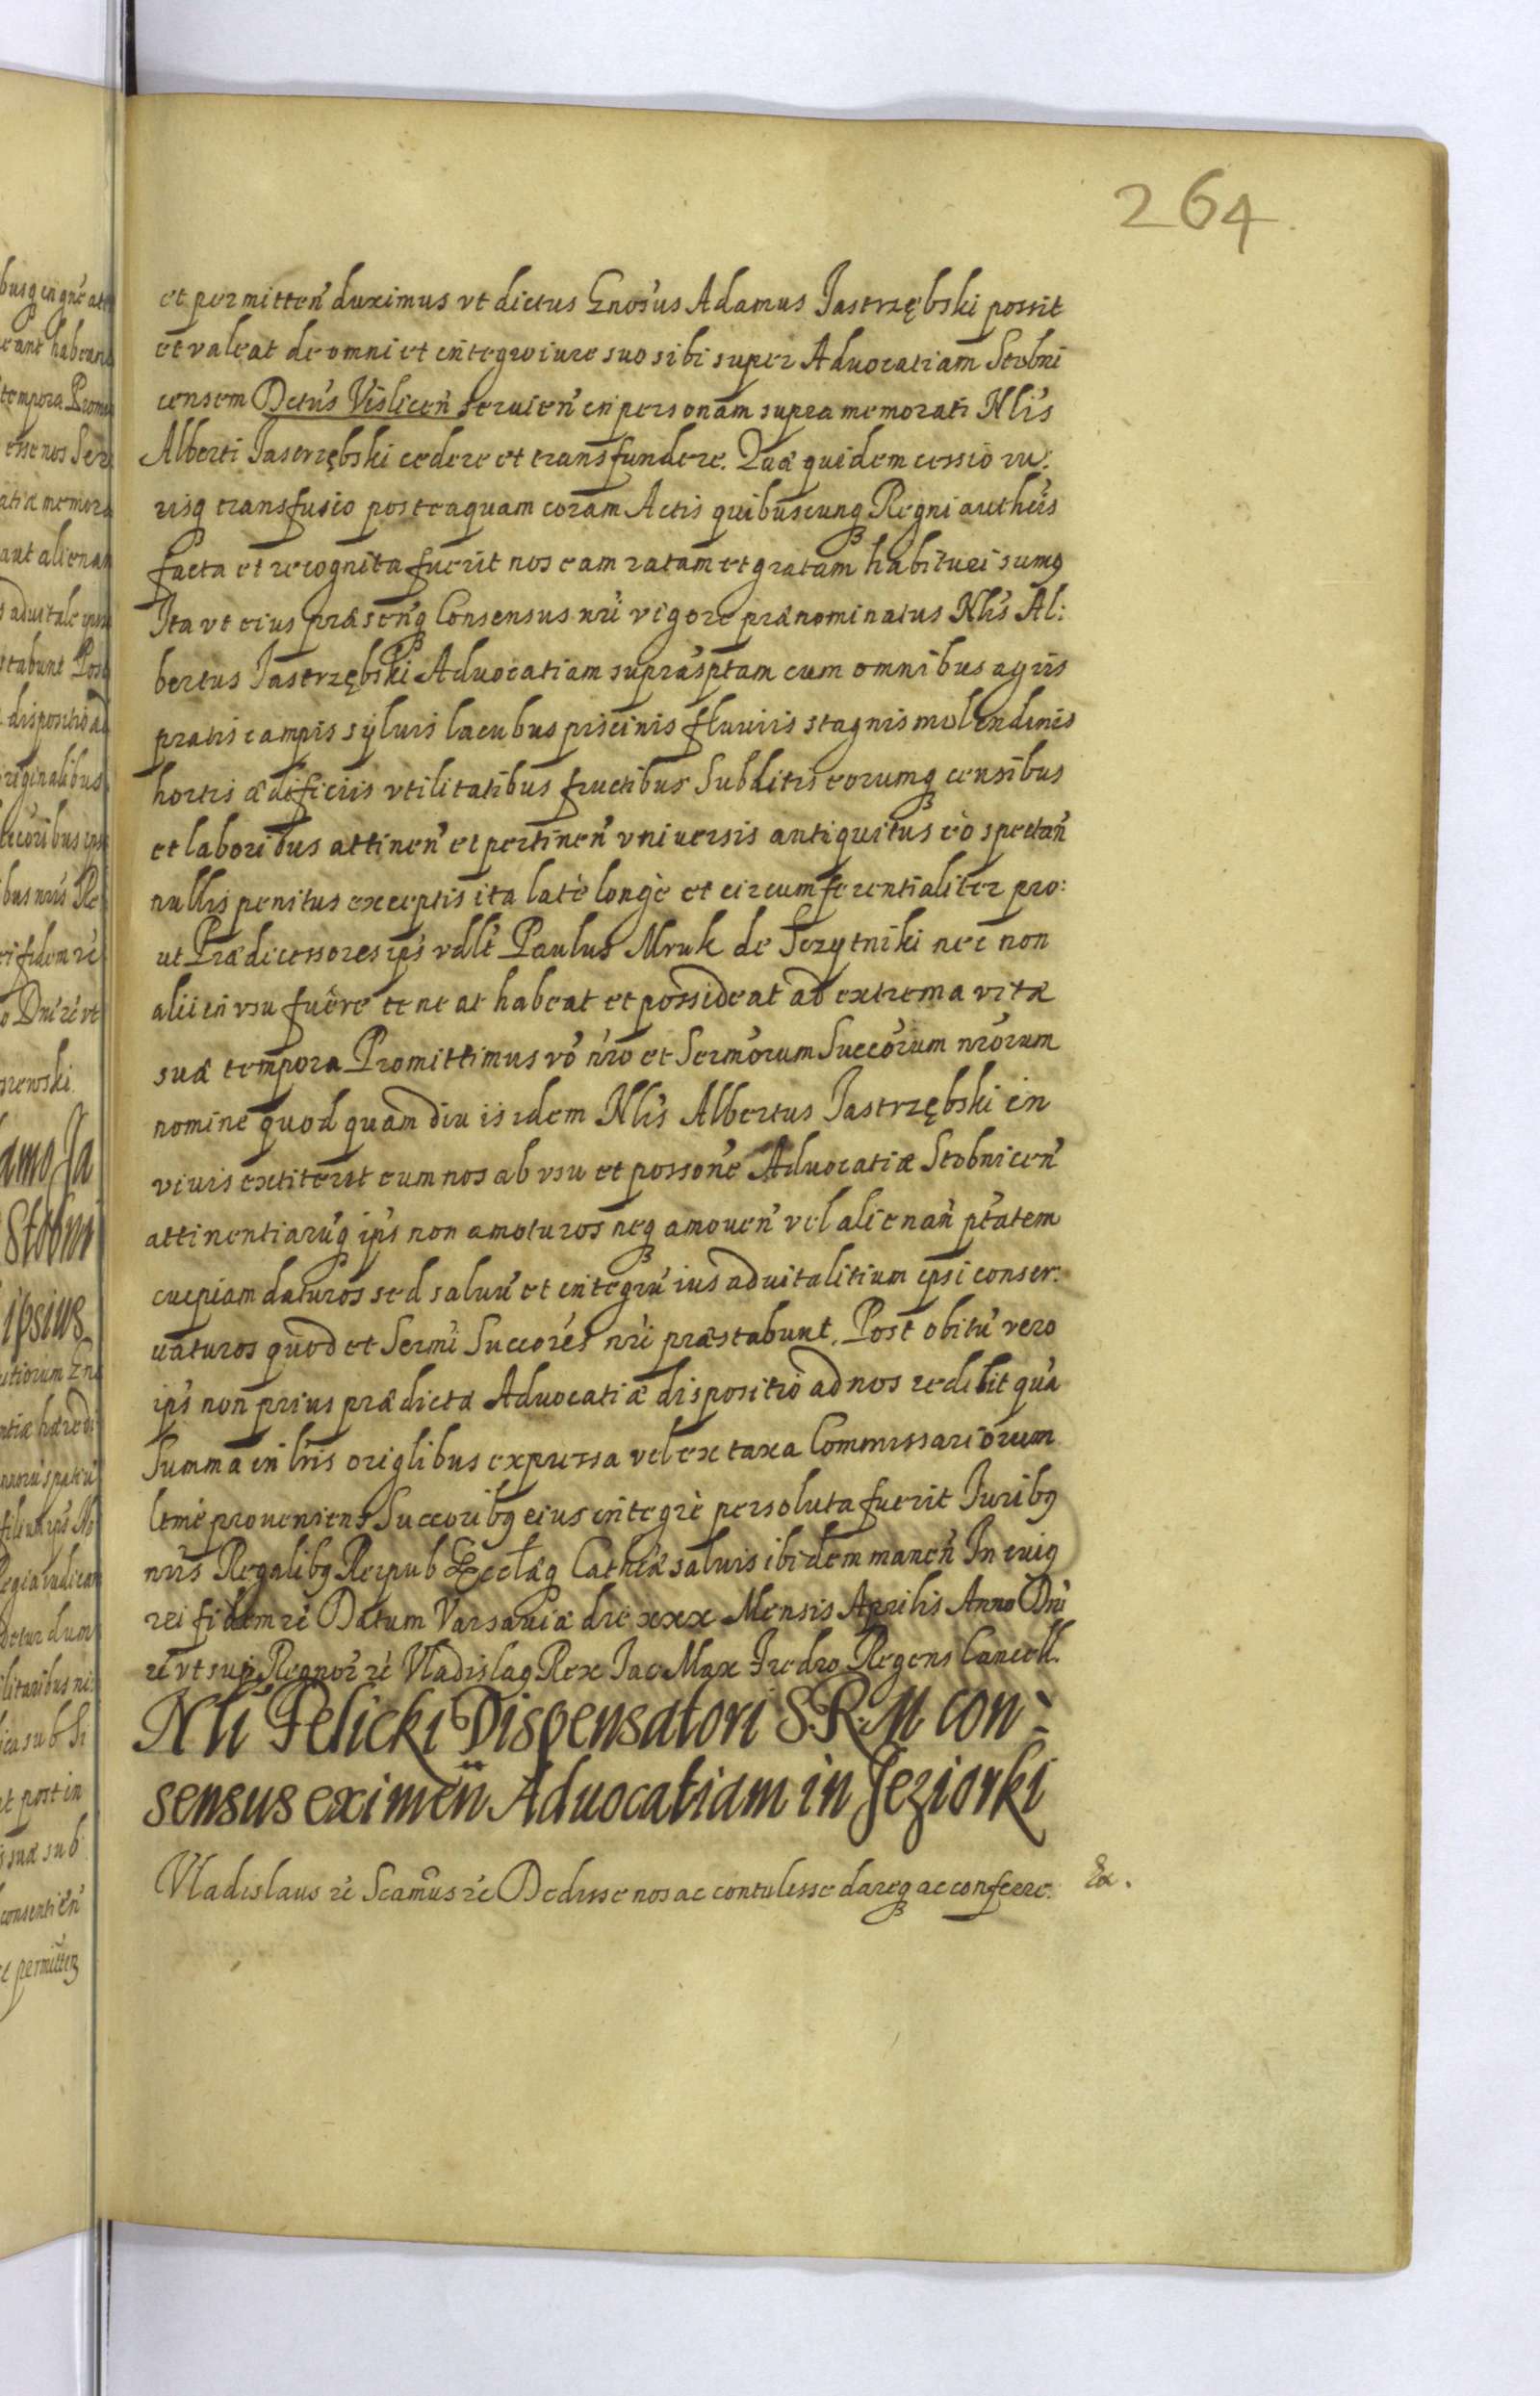 264
et permitten̄ duximus vt dictus Gnosus Adamus Jastrzębski possit
et valeat de omni et integro iure suo sibi super Aduocatiam Stobni
censem Dctus Vislicen̄ seruien̄ in personam supra memorati Nlis
Alberti Jastrzębski cedere et transfundere. Quæ quidem cessio iu:
risq transfusio posteaquam coram Actis quibuscunq Regni authcis
facta et recognita fuerit nos eam ratam et gratam habituri sumq
Ita vt eius præsenq Consensus nri vigore prænominatus Nlis Al:
bertus Jastrzębski Aduocatiam suprasptam cum omnibus agris
pratis campis syluis lacubus piscinis fluuiis stagnis molendinis
hortis ædificiis vtilitatibus fructibus Subditis eorumq censibus
et laboribus attinen̄ et pertinen̄ vniuersis antiquitus eò spectan̄
nullis penitus exceptis ita latè longè et circumferentialiter pro:
ut Prædicessores ips vdlt Paulus Mruk de Sczytniki nec non
alii in vsu fuêre teneat habeat et possideat ad extrema vitæ
suæ tempora Promittimus vo nro et Sermorum Succorum nrorum
nomine quod quam diu is idem Nlis Albertus Jastrzębski in
viuis extiterit eum nos ab vsu et possone Aduocatiæ Stobnicen̄
attinentiaruq ips non amoturos neq amouen̄ vel alienan̄ ptatem
cuepiam daturos sed saluu et integru ius aduitalitium ipsi conser:
uaturos quod et Sermi Succores nri præstabunt. Post obitu vero
ips non prius prædictæ Aduocatiæ dispositio ad nos redibit qua
Summa in lris origlibus expressa vel ex taxa Commissariorum
ltme proueniens Succoribq eius integrè persoluta fuerit Juribq
nris Regalibq Reipub Ecclæq Cathcæ saluis ibidem manen̄ In cuiq
rei fidem rc Datum Varsauiæ die xxx Mensis Aprilis Anno Dni
rc vt sup Regnor rc Vladislaq Rex Jac Max Fredro Regens Cancell.
Nli Felicki Dispensatori S.R.M con:
sensus eximen̄ Aduocatiam in Jeziorki
Vladislaus rc Scamus rc Dedisse nos ac contulisse dareq ac conferre